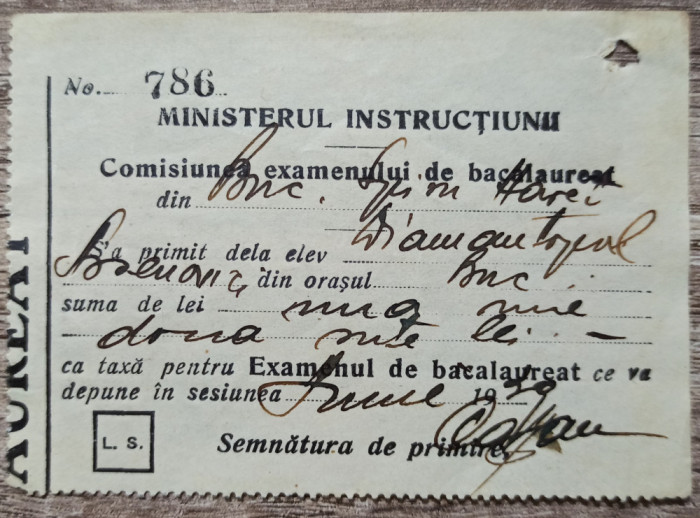 No. 786
MINISTERUL INSTRUCȚIUNII
Comisiunea examenului de bacalaureat
din Buc. Spiru Haret
S'a primit dela elev
din orașul Buc.
suma de lei una mie
doua sute lei —
ca taxă pentru Examenul de bacalaureat ce va
depune în sesiunea Iunie 1939
L. S.
Semnătura de primire